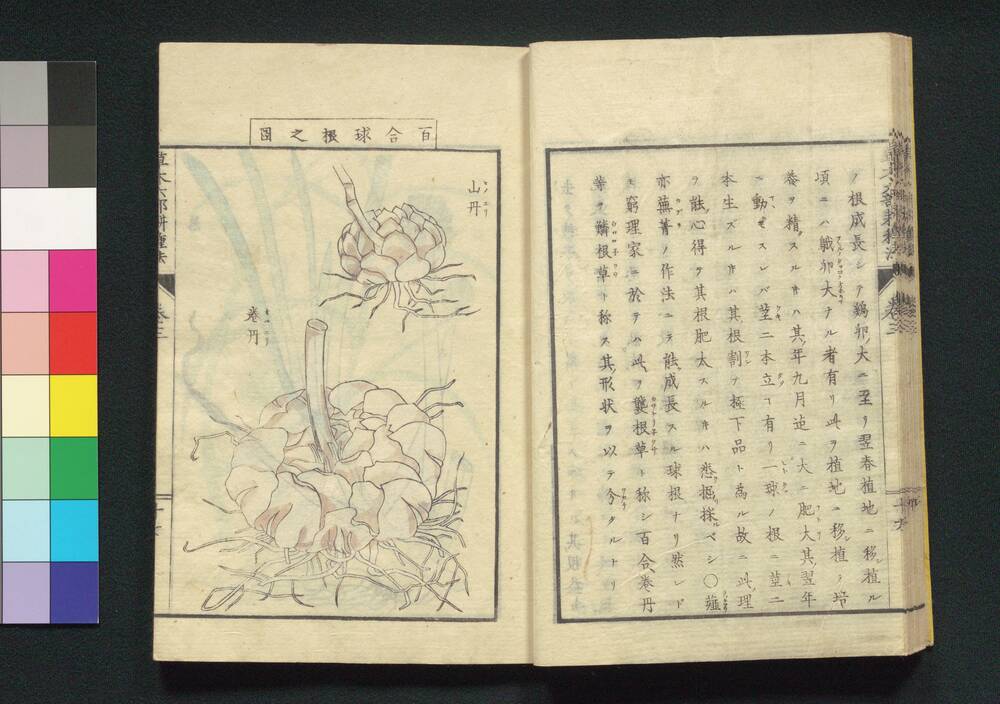 ノ根成長シテ鷄卵大ニ至リ翌春植地ニ移植ル
項ニハ鵞卵大ナル者有リ此ヲ植地ニ移植ノ培
養ヲ精スルキハ其年九月迄ニ大ニ肥大其翌年
ニ動モスレバ莖二本立コ有リ一球ノ根ニ莖二
本生ズルキハ其根割テ極下品ト爲ル故ニ此理
ヲ能心得テ其根肥太スルキハ悉掘採ベシ〇薤
亦蕪菁ノ作法ニテ能成長スル球根ナリ然レド
モ窮理家ニ於テハ此ヲ襲根草ト称シ百合卷丹
等ヲ鱗根草ト称ス其形状ヲ以テ分タルトリ
百合球根之圖
山丹
卷丹
草木六部耕種法
卷三